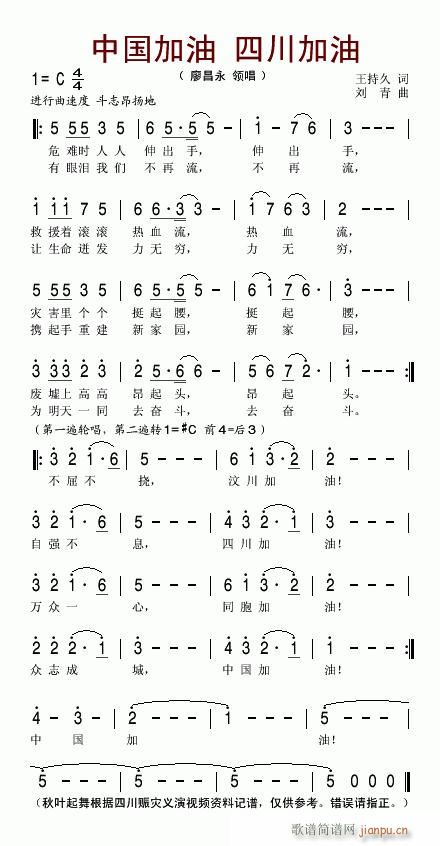 中国加油 四川加油
( 廖昌永 领唱 )
1= C 4/4
王持久 词
进行曲速度 斗志昂扬地
刘 青 曲
‖: 5 55 3 5 | 6 5·5 5 | i - 7 6 | 5 - - - |
危 难时 人 人 伸 出 手, 伸 出 手,
有 眼泪 我 们 不 再 流, 不 再 流,
i ii 7 5 | 6 6·3 3 | i 7 6 3 | 2 - - - |
救 援着 滚 滚 热 血 流, 热 血 流,
让 生命 迸 发 力 无 穷, 力 无 穷,
5 55 3 5 | 6 6·5 5 | i 7 7 6· | 3 - - - |
灾 害里 个 个 挺 起 腰, 挺 起 腰,
携 起手 重 建 新 家 园, 新 家 园,
3 33 2 3 | 2 5·6 6 | 5 6 7 2· | i - - - :‖
废 墟上 高 高 昂 起 头, 昂 起 头。
为 明天 一 同 去 奋 斗, 去 奋 斗。
(第一遍轮唱, 第二遍转1=#C 前4=后3)
‖: 3 2 i·6 | 5 - - - | 6 i 3·2 | 2 - - - |
不 屈 不 挠, 汶 川 加 油!
3 2 i·6 | 5 - - - | 4 3 2·i | 3 - - - |
自 强 不 息, 四 川 加 油!
3 2 i·6 | 5 - - - | 6 i 3·2 | 2 - - - |
万 众 一 心, 同 胞 加 油!
2 2 2·i | 3 - - - | 4 3 2·i | i - - - :‖
众 志 成 城, 中 国 加 油!
4 - 3 - | 2 - - - | i - - - | 5 - - - |
中 国 加 油!
5 - - - | 5 - - - | 5 - - - | 5 0 0 0 ‖
(秋叶起舞根据四川赈灾义演视频资料记谱, 仅供参考。错误请指正。)
歌谱简谱网
jianpu.cn